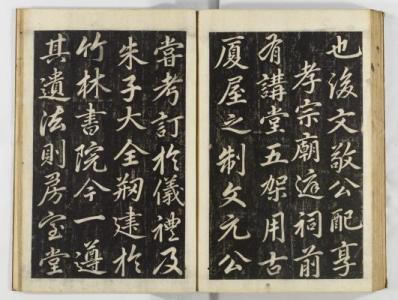 也後文敬公配享
孝宗廟遊祠前
有講堂五架用古
廈屋之制文元公
嘗考訂於儀禮及
朱子大全剏建於
竹林書院今一遵
其遺法則房室堂